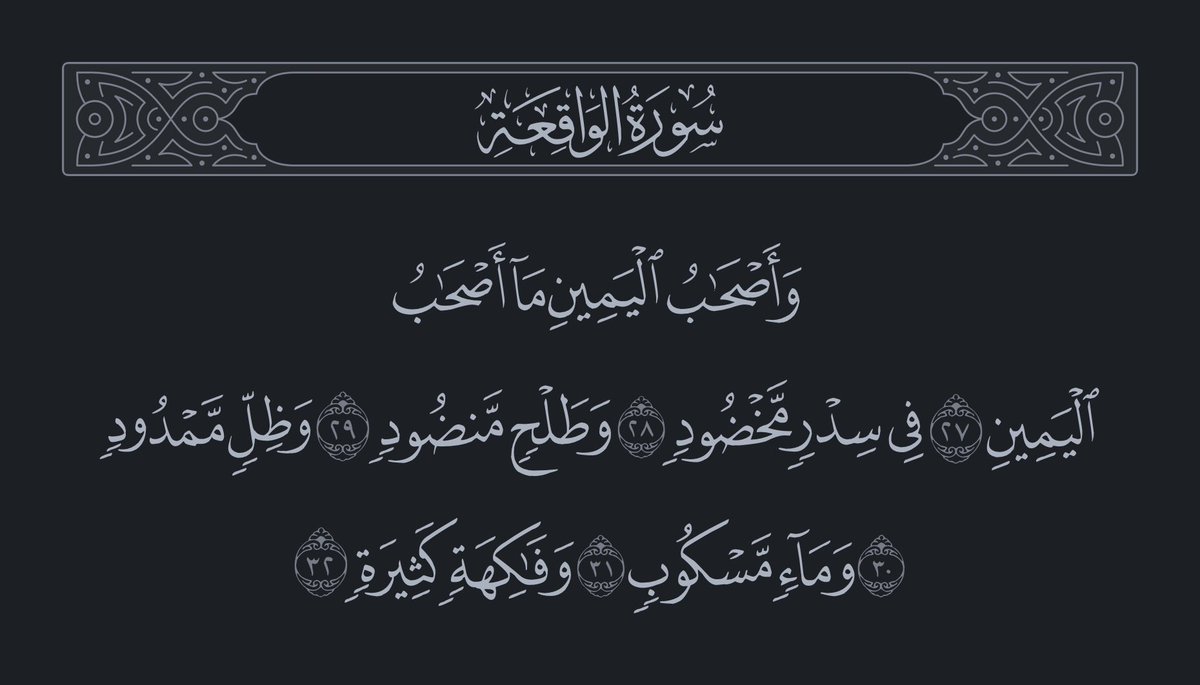 سُورَةُ الوَاقِعَةِ
وَأَصۡحَٰبُ ٱلۡيَمِينِ مَآ أَصۡحَٰبُ
ٱلۡيَمِينِ ٢٧ فِي سِدۡرٖ مَّخۡضُودٖ ٢٨ وَطَلۡحٖ مَّنضُودٖ ٢٩ وَظِلّٖ مَّمۡدُودٖ
٣٠ وَمَآءٖ مَّسۡكُوبٖ ٣١ وَفَٰكِهَةٖ كَثِيرَةٖ ٣٢